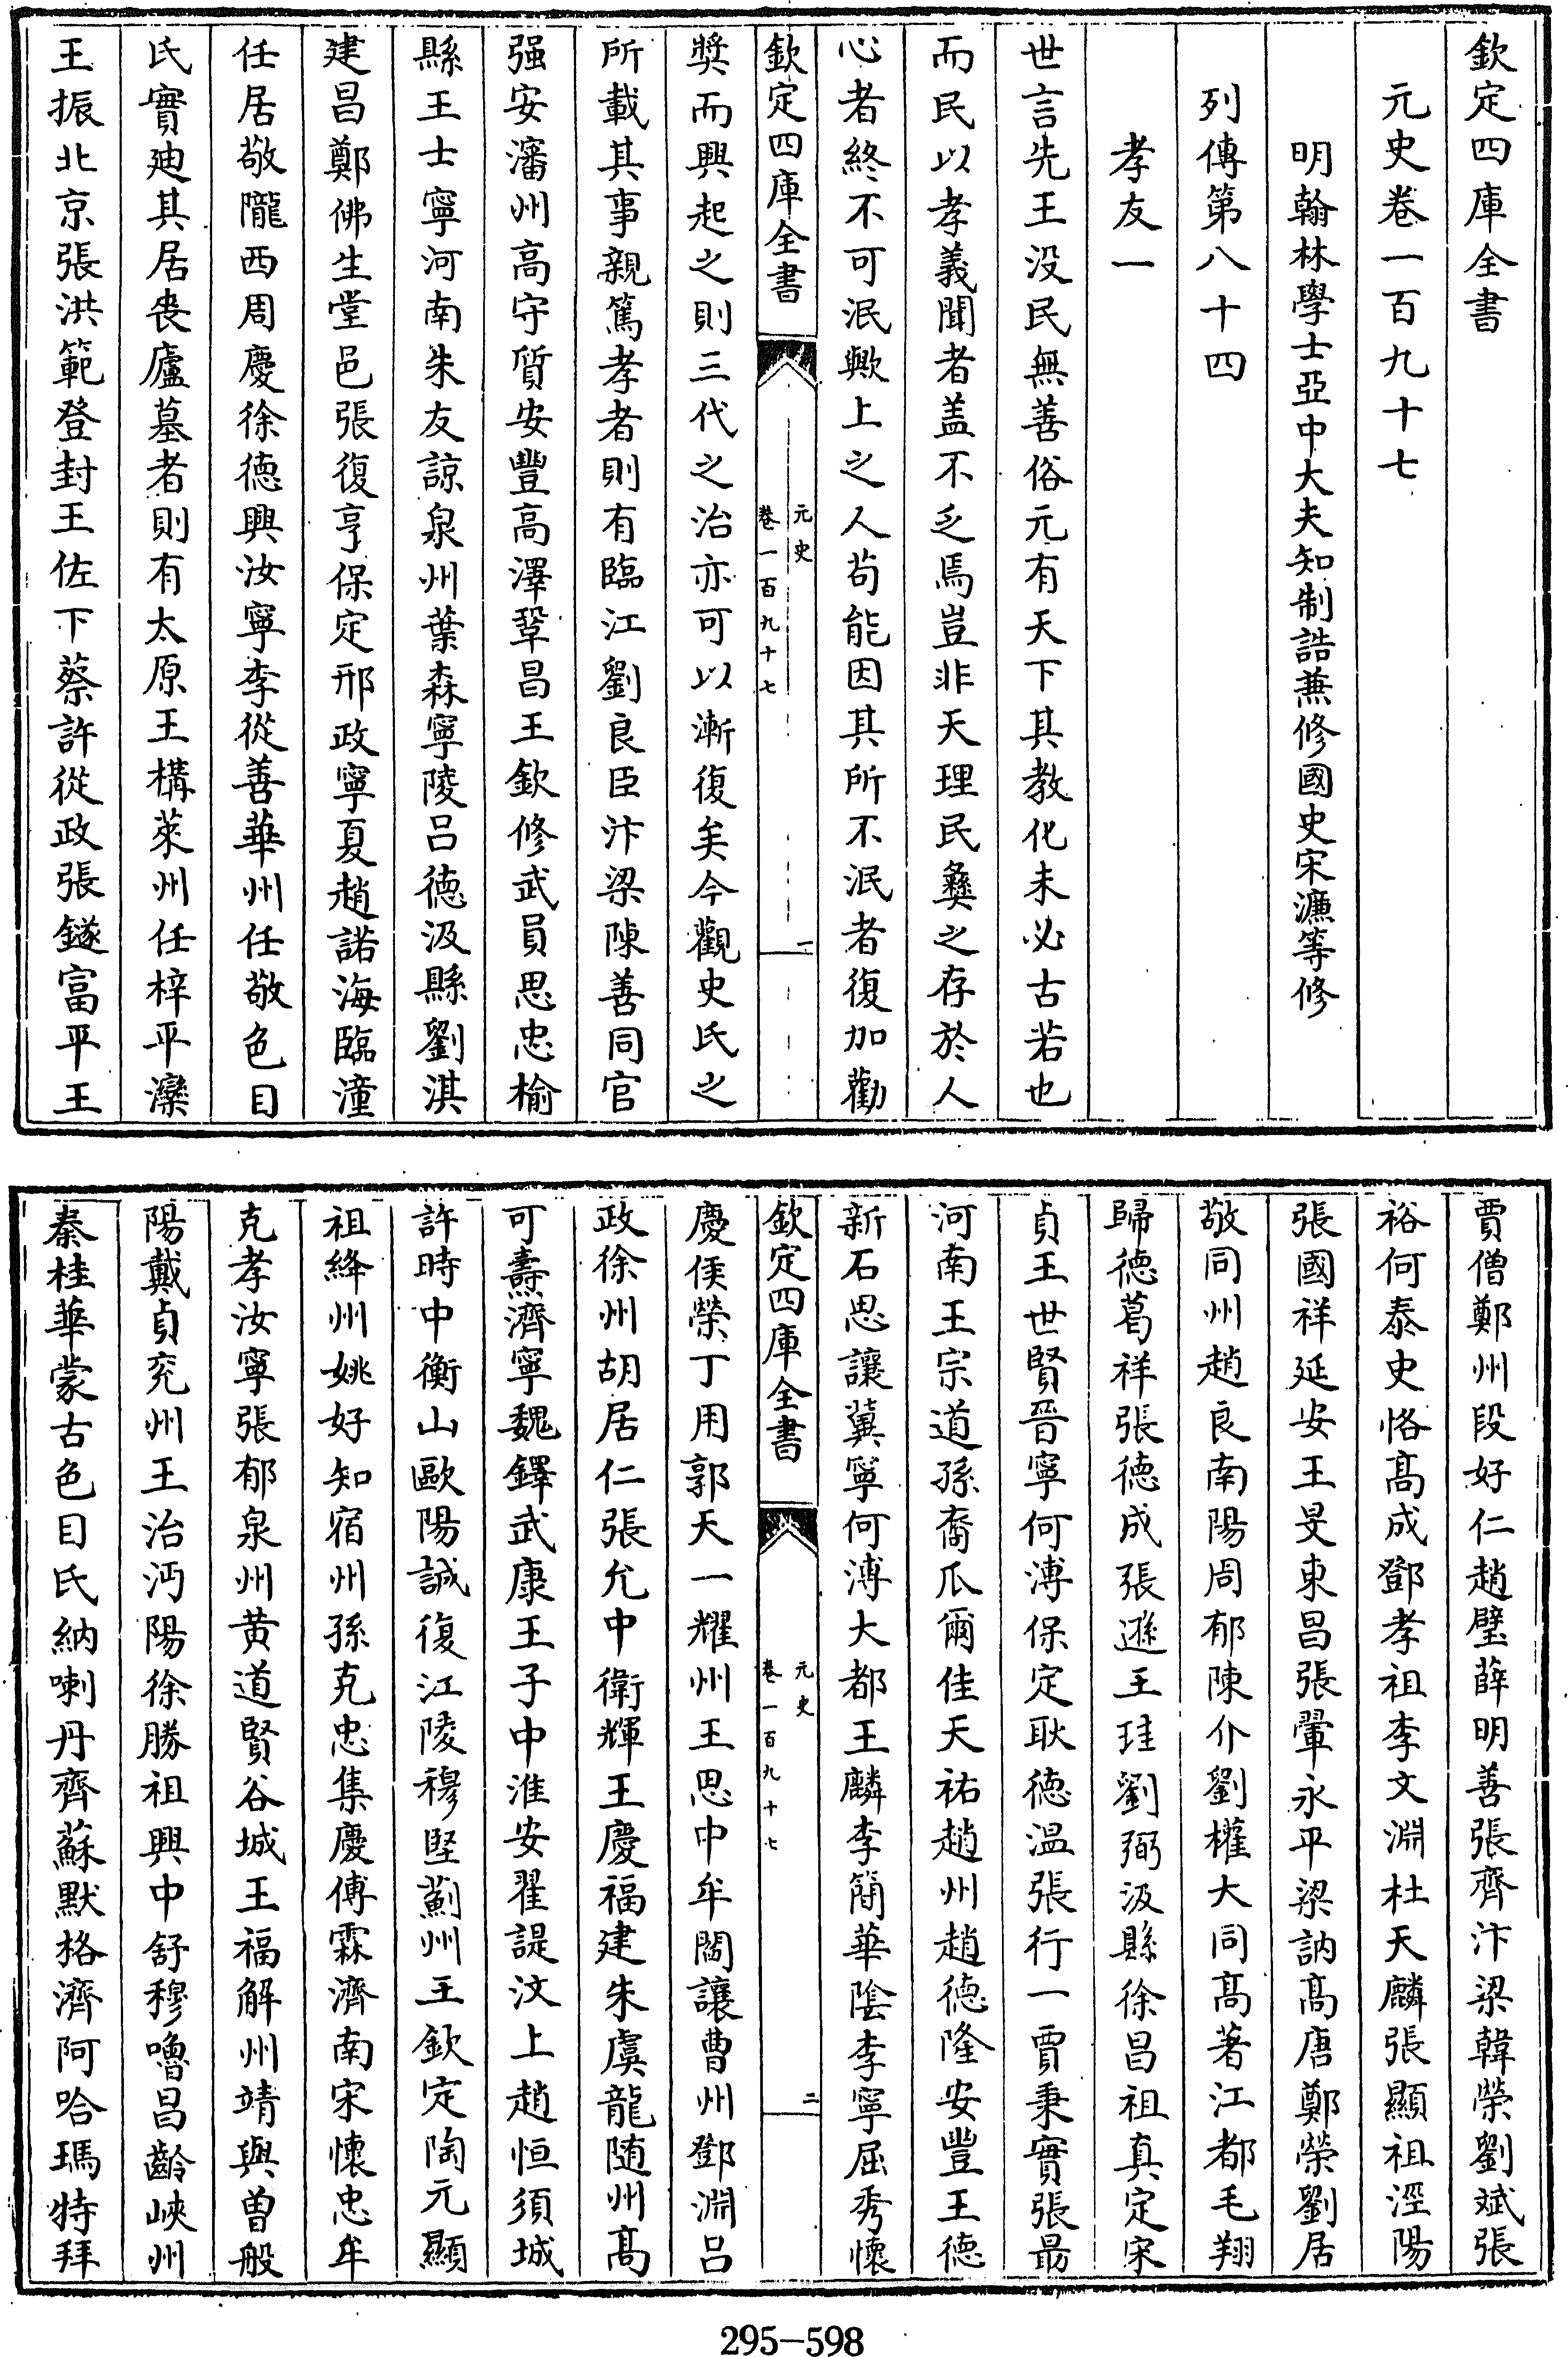 欽定四庫全書
元史卷一百九十七
明翰林學士亞中大夫知制誥兼修國史宋濂等修
列傳第八十四
孝友一
世言先王没民無善俗元有天下其教化未必古若也
而民以孝義聞者盖不乏焉豈非天理民彝之存於人
心者終不可泯歟上之人苟能因其所不泯者復加勸
欽定四庫全書
元史
卷一百九十七
一
奬而興起之則三代之治亦可以漸復矣今觀史氏之
所載其事親篤孝者則有臨江劉良臣汴梁陳善同官
强安瀋州高守質安豐高澤鞏昌王欽修武員思忠榆
縣王士寧河南朱友諒泉州葉森寧陵吕德汲縣劉淇
建昌鄭佛生堂邑張復亨保定邢政寧夏趙諾海臨潼
任居敬隴西周慶徐德興汝寧李從善華州任敬色目
氏實廸其居喪廬墓者則有太原王構萊州任梓平灤
王振北京張洪範登封王佐下蔡許從政張鐩富平王
賈僧鄭州段好仁趙璧薛明善張齊汴梁韓榮劉斌張
裕何泰史恪髙成鄧孝祖李文淵杜天麟張顯祖涇陽
張國祥延安王旻東昌張翬永平梁訥髙唐鄭榮劉居
敬同州趙良南陽周郁陳介劉權大同髙著江都毛翔
歸德葛祥張德成張遜王珪劉弼汲縣徐昌祖真定宋
貞王世賢晉寧何溥保定耿德温張行一賈秉實張最
河南王宗道孫裔瓜爾佳天祐趙州趙德隆安豐王德
新石思讓冀寧何溥大都王麟李簡華隂李寧屈秀懷
欽定四庫全書
元史
卷一百九十七
二
慶侯榮丁用郭天一耀州王思中牟閻讓曹州鄧淵吕
政徐州胡居仁張允中衛輝王慶福建朱虞龍随州髙
可壽濟寧魏鐸武康王子中淮安翟諟汶上趙恒須城
許時中衡山歐陽誠復江陵穆堅薊州王欽定陶元顯
祖絳州姚好知宿州孫克忠集慶傅霖濟南宋懷忠牟
克孝汝寧張郁泉州黄道賢谷城王福解州靖與曾般
陽戴貞兖州王治沔陽徐勝祖興中舒穆嚕昌齡峽州
秦桂華蒙古色目氏納喇丹齊蘇默格濟阿哈瑪特拜
295-598